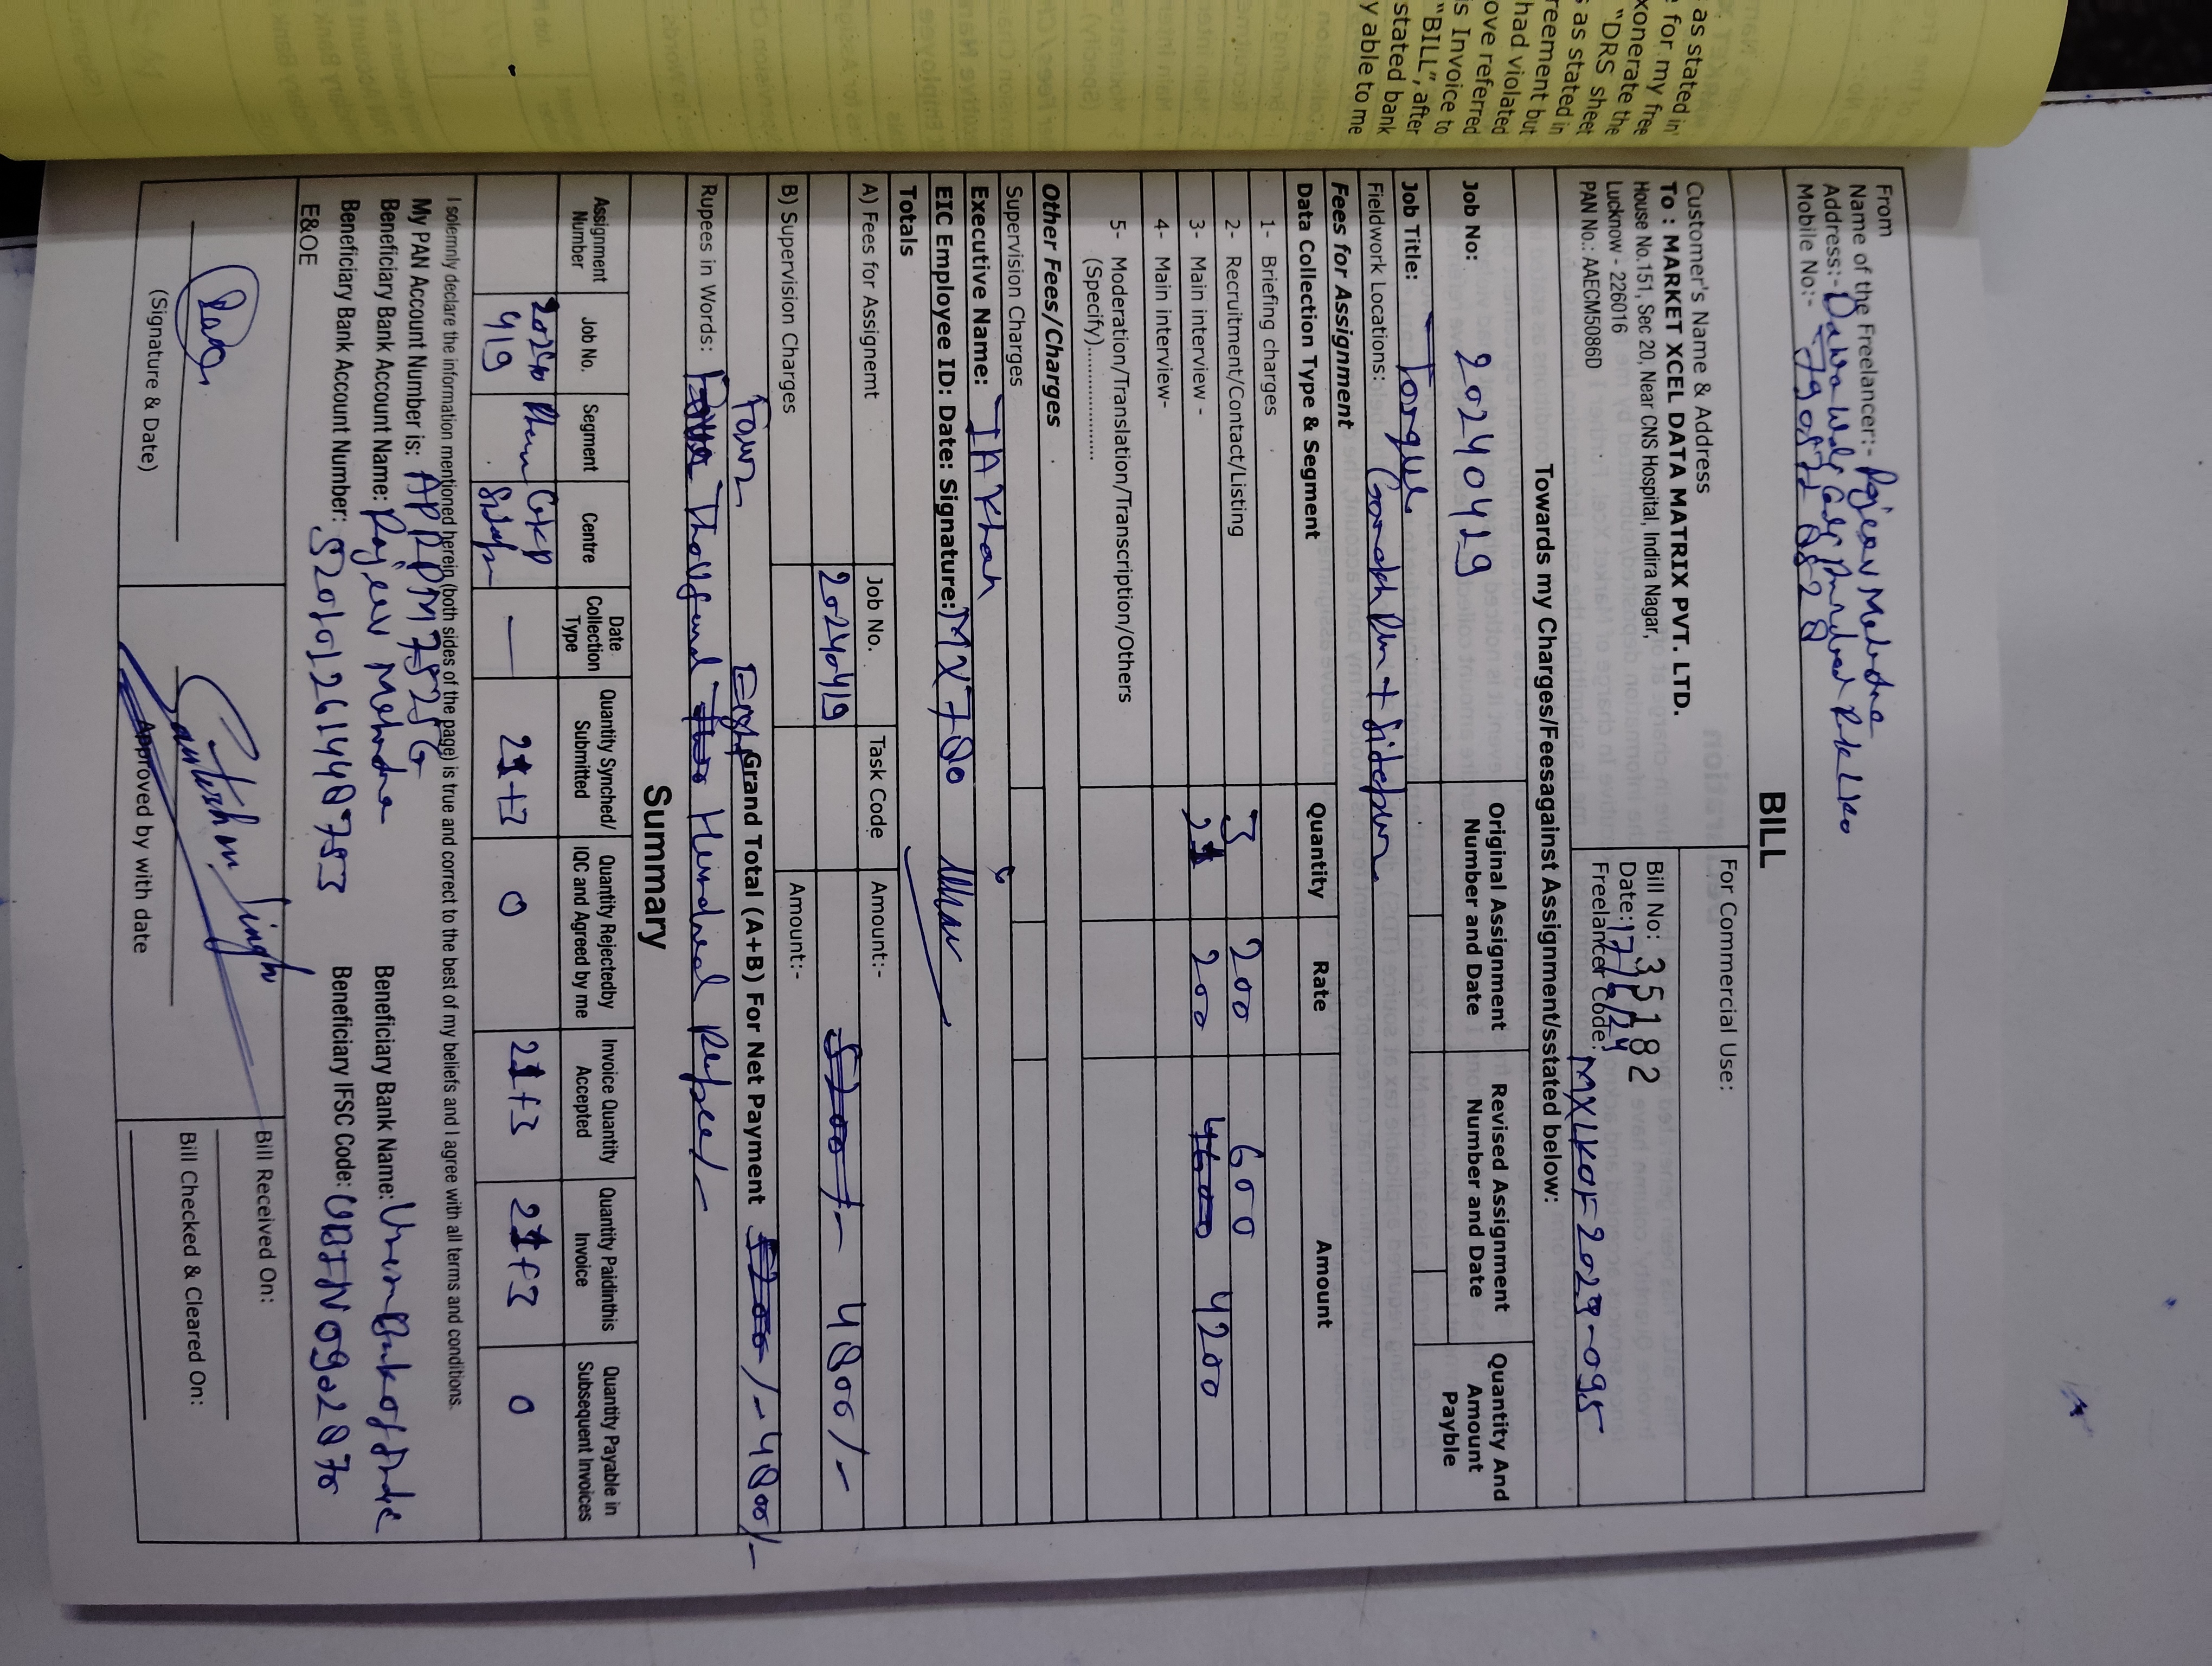 as stated in
e for my free
xonerate the
"DRS" sheet
s as stated in
reement but
had violated
ove referred
is Invoice to
"BILL", after
stated bank
y able to me
From
Name of the Freelancer:- Rajeev Mehrotra
Address:-
Mobile No:-
BILL
Customer's Name & Address
For Commercial Use:
To : MARKET XCEL DATA MATRIX PVT. LTD.
House No.151, Sec 20, Near CNS Hospital, Indira Nagar,
Lucknow - 226016
PAN No.: AAECM5086D
Bill No: 35182
Date: 17/6/24
Freelancer Code: MXLKOF2029-095
Towards my Charges/Feesagainst Assignment/sstated below:
Job No: 20240419
Original Assignment Number and Date
Revised Assignment Number and Date
Quantity And Amount Payble
Job Title: Torque
Fieldwork Locations: Gorakhpur + Sidepur
Fees for Assignment
Data Collection Type & Segment Quantity Rate Amount
1- Briefing charges
2- Recruitment/Contact/Listing 3 200 600
3- Main interview - 21 200 4600 4200
4- Main interview-
5- Moderation/Translation/Transcription/Others
(Specify)...............
Other Fees/Charges
Supervision Charges
Executive Name: IA Khan
EIC Employee ID: Date: Signature: MX780
Totals
A) Fees for Assignemt Job No. Task Code Amount:-
20240419 5200/- 4800/-
B) Supervision Charges Amount:-
Grand Total (A+B) For Net Payment 5200/- 4800/-
Four Eight
Rupees in Words: Thousand Hundread Rupees/-
Summary
Assignment Number Job No. Segment Centre Date Collection Type Quantity Synched/ Submitted Quantity Rejectedby IQC and Agreed by me Invoice Quantity Accepted Quantity Paidinthis Invoice Quantity Payable in Subsequent Invoices
20240419 GKP — 21+3 0 21+3 21+3 0
I solemnly declare the information mentioned herein (both sides of the page) is true and correct to the best of my beliefs and I agree with all terms and conditions.
My PAN Account Number is: APRPM7582G
Beneficiary Bank Account Name: Rajeev Mehrotra Beneficiary Bank Name: Union Bank of India
Beneficiary Bank Account Number: 520101261448753 Beneficiary IFSC Code: UBIN0902870
E&OE
Bill Received On:
(Signature & Date)
Approved by with date
Bill Checked & Cleared On: